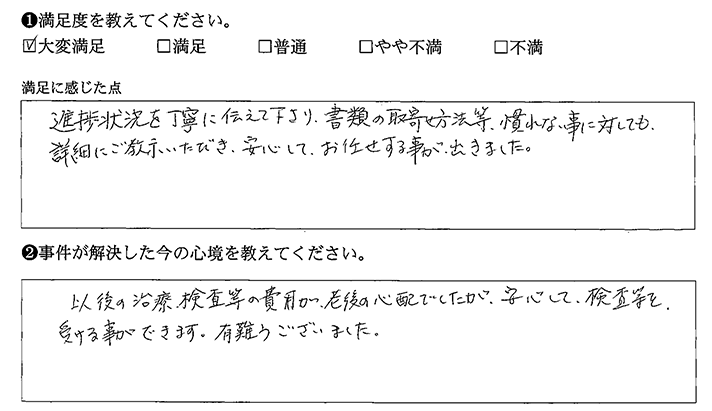 ❶満足度を教えてください。
☑大変満足 □満足 □普通 □やや不満 □不満
満足に感じた点
進捗状況を丁寧に伝えて下さり、書類の取寄せ方法等、慣れない事に対しても、
詳細にご教示いただき、安心して、お任せする事が、出きました。
❷事件が解決した今の心境を教えてください。
以後の治療、検査等の費用が、老後の心配でしたが、安心して、検査等を、
受ける事ができます。有難うございました。